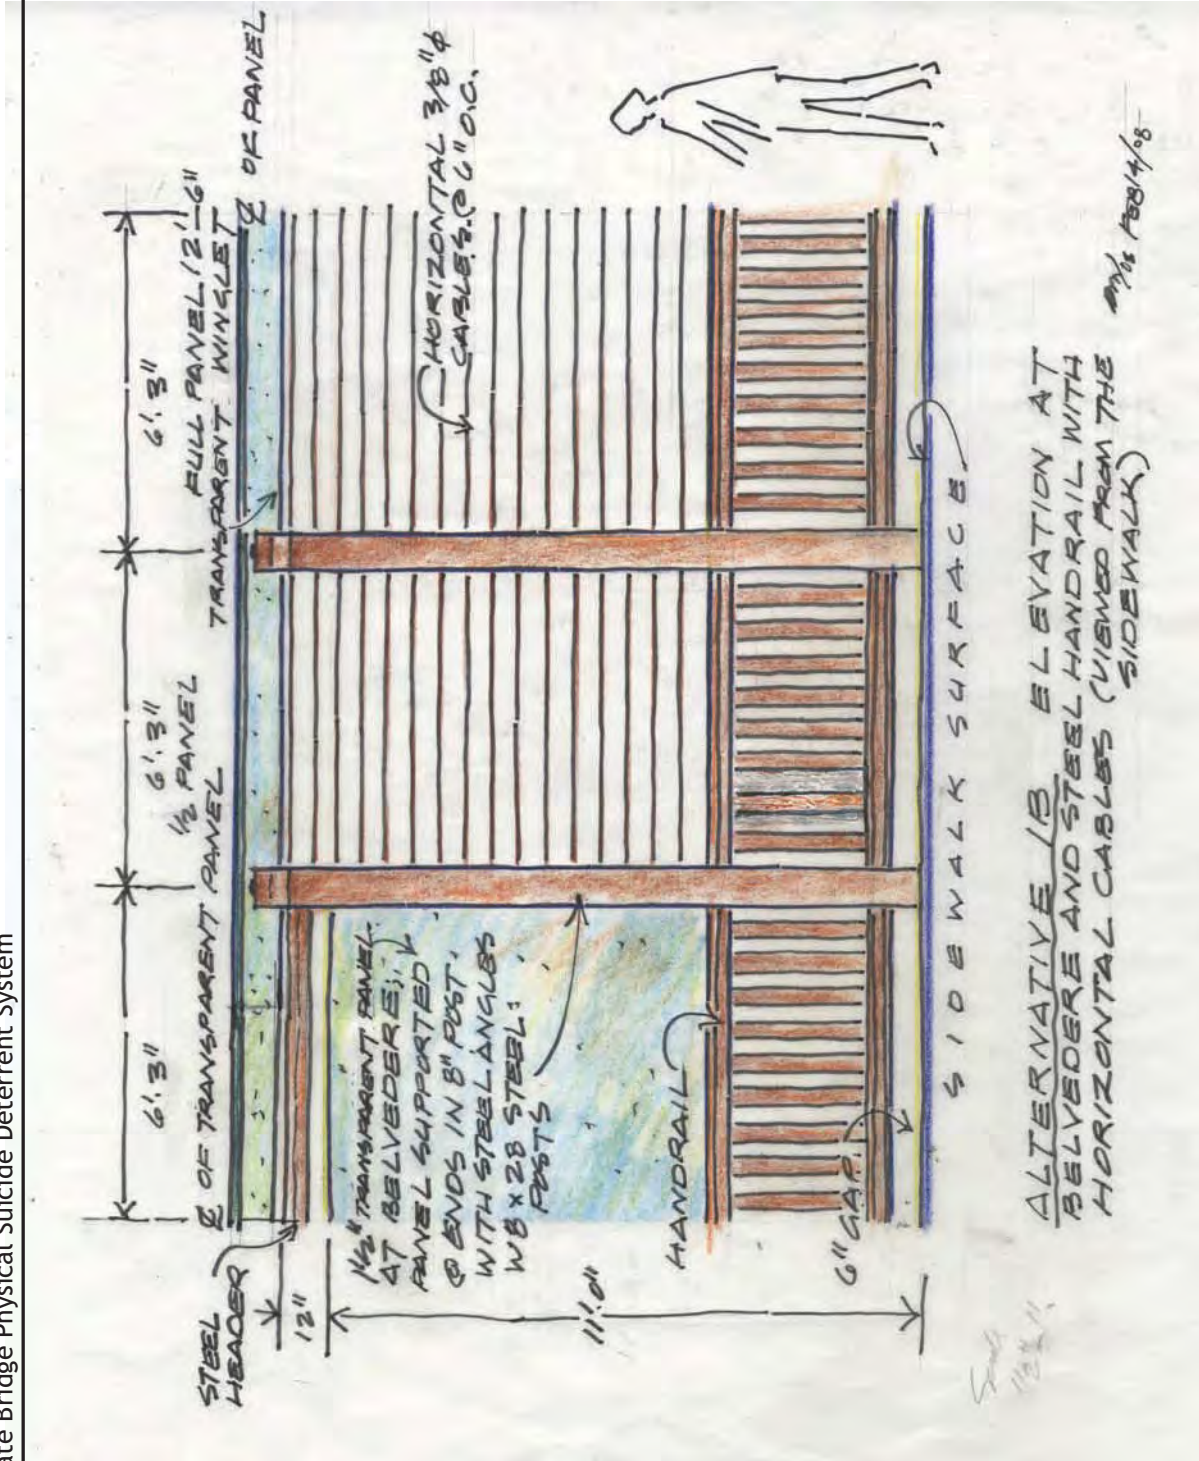 ate Bridge Physical Suicide Deterrent System
6'.3"
6'.3"
6'.3"
1/2 PANEL
FULL PANEL 12'-6"
℄ OF TRANSPARENT PANEL
TRANSPARENT WINGLET
℄ OF PANEL
STEEL
HEADER
12"
11'.0"
1 1/2" TRANSPARENT PANEL
AT BELVEDERE;
PANEL SUPPORTED
@ ENDS IN 8" POST
WITH STEEL ANGLES
W8 x 28 STEEL
POSTS
HORIZONTAL 3/8" φ
CABLES @ 6" O.C.
HANDRAIL
6" GAP
SIDEWALK SURFACE
ALTERNATIVE 1B ELEVATION AT
BELVEDERE AND STEEL HANDRAIL WITH
HORIZONTAL CABLES (VIEWED FROM THE
SIDEWALK)